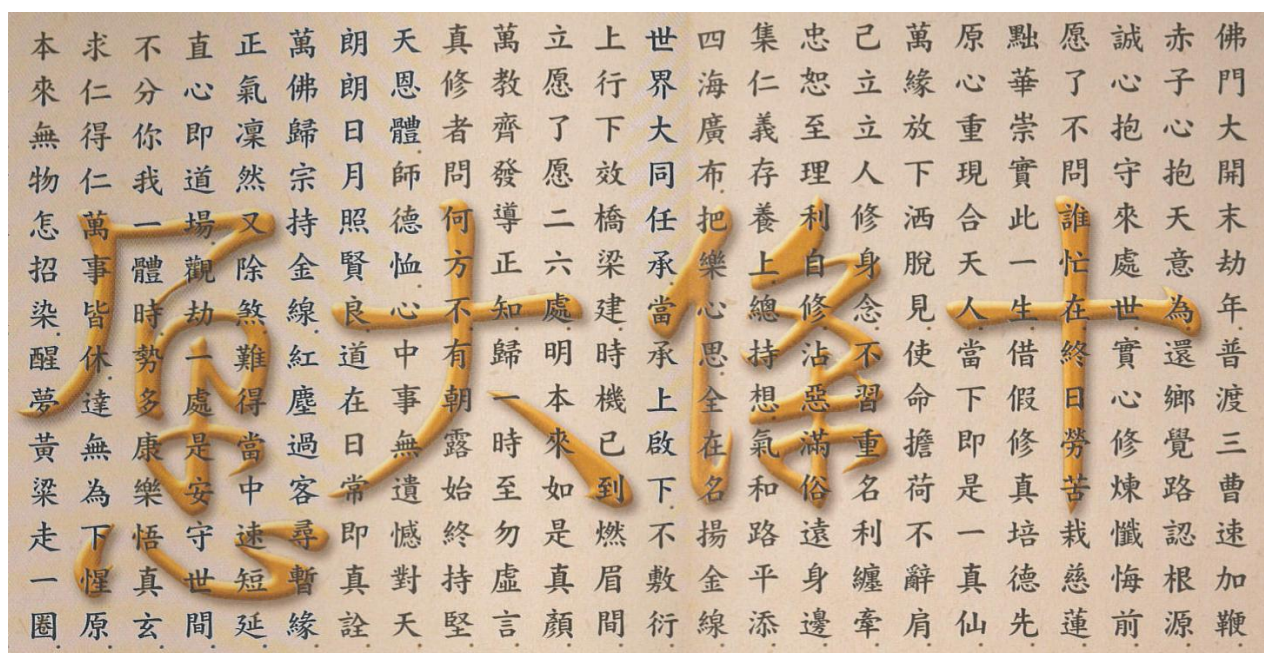 十條大愿
佛門大開末劫年普渡三曹速加鞭
赤子心抱天意為還鄉覺路認根源
誠心抱守來處世實心修煉懺悔前
愿了不問誰忙在終日勞苦栽慈蓮
黜華崇實此一生借假修真培德先
原心重現合天人當下即是一真仙
萬緣放下洒脫見使命擔荷不辭肩
己立立人修身念不習重名利纏牽
忠恕至理利自修沾惡滿俗遠身邊
集仁義存養上總持想氣和路平添
四海廣布把樂心思全在名揚金線
世界大同任承當承上啟下不敷衍
上行下效橋梁建時機已到燃眉間
立愿了愿二六處明本來如是真顏
萬教齊發導正知歸一時至勿虛言
真修者問何方不有朝露始終持堅
天恩體師德恤心中事無遺憾對天
朗朗日月照賢良道在日常即真詮
萬佛歸宗持金線紅塵過客尋暫緣
正氣凜然又除煞難得當中速短延
直心即道場觀劫一處是安守世間
不分你我一體時勢多康樂悟真玄
求仁得仁萬事皆休達無為下惺原
本來無物怎招染醒夢黃粱走一圈